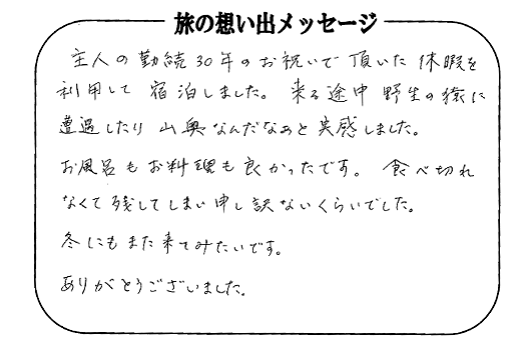 旅の想い出メッセージ
主人の勤続30年のお祝いで頂いた休暇を
利用して 宿泊しました。 来る途中 野生の猿に
遭遇したり 山奥なんだなぁと実感しました。
お風呂もお料理も良かったです。 食べ切れ
なくて残してしまい申し訳ないくらいでした。
冬にもまた来てみたいです。
ありがとうございました。